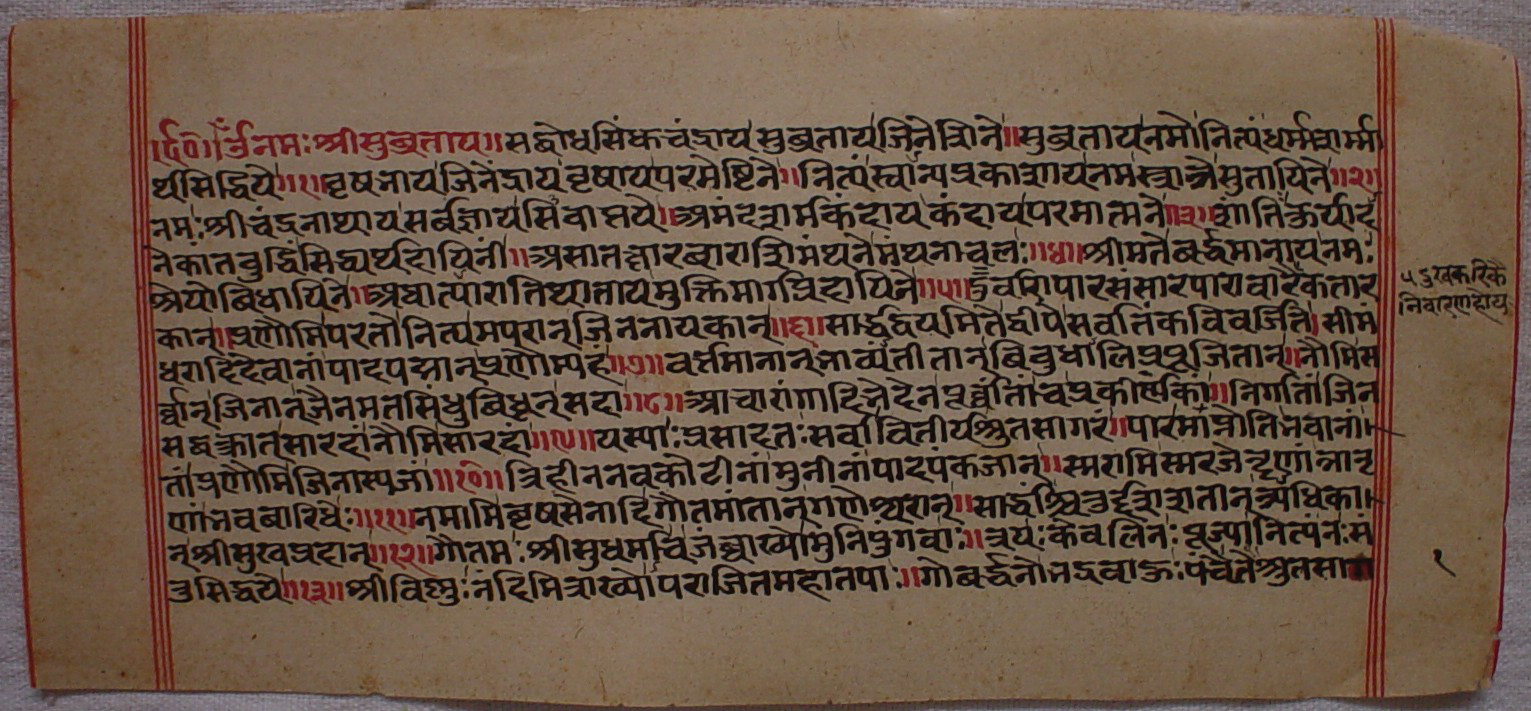 ॥र्द०॥ ॐ नमः श्रीसुव्रताय॥ सद्बोधसिंधुचंद्राय सुव्रतायजिनेशिने॥ सुव्रतायनमोनित्यंधर्मशर्मा
र्थसिद्धये॥१॥ वृषभायजिनेंद्राय वृषायपरमेष्टिने॥ नित्यंस्वान्यप्रकाशायनमस्त्रात्रेसुतायिने॥२॥
नमः श्रीचंद्रनाथायसर्वज्ञायसिवाप्तये॥ अमंदशर्मकंदायकंदायपरमात्मने॥३॥ शांतिंकुर्याद
नेकांतबुद्धिंसिद्ध्यर्थदायिनीं॥ असातक्षारबाराशिमंथनेमथनाचलः॥४॥ श्रीमतेबर्द्धमानायनमः
श्रेयोबिधायिने॥ अघात्यारातिघातायमुक्तिमार्गप्रदायिने॥५॥ दुर्वारापारसंसारपारावारैकतार
कान्॥ प्रणौमिपरतोनित्यमपरान्जिननायकान्॥६॥ सार्द्धद्वयमितेद्वीपेसर्वातंकविवर्जिते॥ सीमं
धरादिदेवानांपादपद्मान्प्रणौम्यहं॥७॥ वर्त्तमानान्भाव्यतीतान्विबुधालिप्रपूजितान्॥ नौमिस
र्वान्जिनान्जैनमतसिंधुबिधून्सदा॥८॥ आचारांगादिभेदेनपूर्वांतांचप्रकीर्णकां॥ निर्गतांजिन
सद्वक्त्रात्सारदांनौमिसारदां॥९॥ यस्याः प्रसादतः सर्वोवितीर्यश्रुतसागरं॥ पारमाप्नोतिभवानां
तांप्रणौमिजिनास्यजां॥१०॥ त्रिहीननवकोटीनांमुनीनांपादपंकजान्॥ स्मरामिस्मरजेतॄणांत्रातॄ
णांभवबारिधेः॥११॥ नमामिवृषसेनादिगौतमांतान्गणेश्वरान्॥ सार्द्धंश्चितुर्द्दशशतान्त्र्यधिका
न्श्रीसुखप्रदान्॥१२॥ गौतमः श्रीसुधर्माचजंब्वाख्योमुनिपुंगवाः॥ त्रयः केवलिनः पूज्यानित्यंनः सं
तुसिद्धये॥१३॥ श्रीविष्णुः नंदिमित्राख्योपराजितमहातपाः॥ गोबर्द्धनोभद्रबाहुः पंचैतेश्रुतसाग
निवारणहाय
१